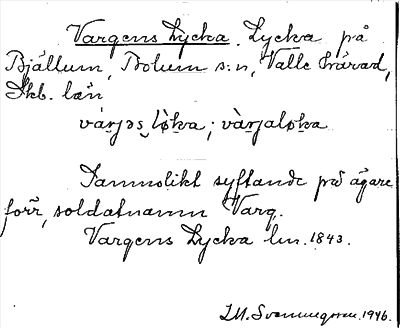 Vargens Lycka. Lycka på
Bjällum, Bolum s:n, Valle härad,
Skb. län
várjəs lø̀ka; vàrjaløka
Sannolikt syftande på ägare
förr, soldatnamn Varg.
Vargens Lycka lm. 1843.
1946.